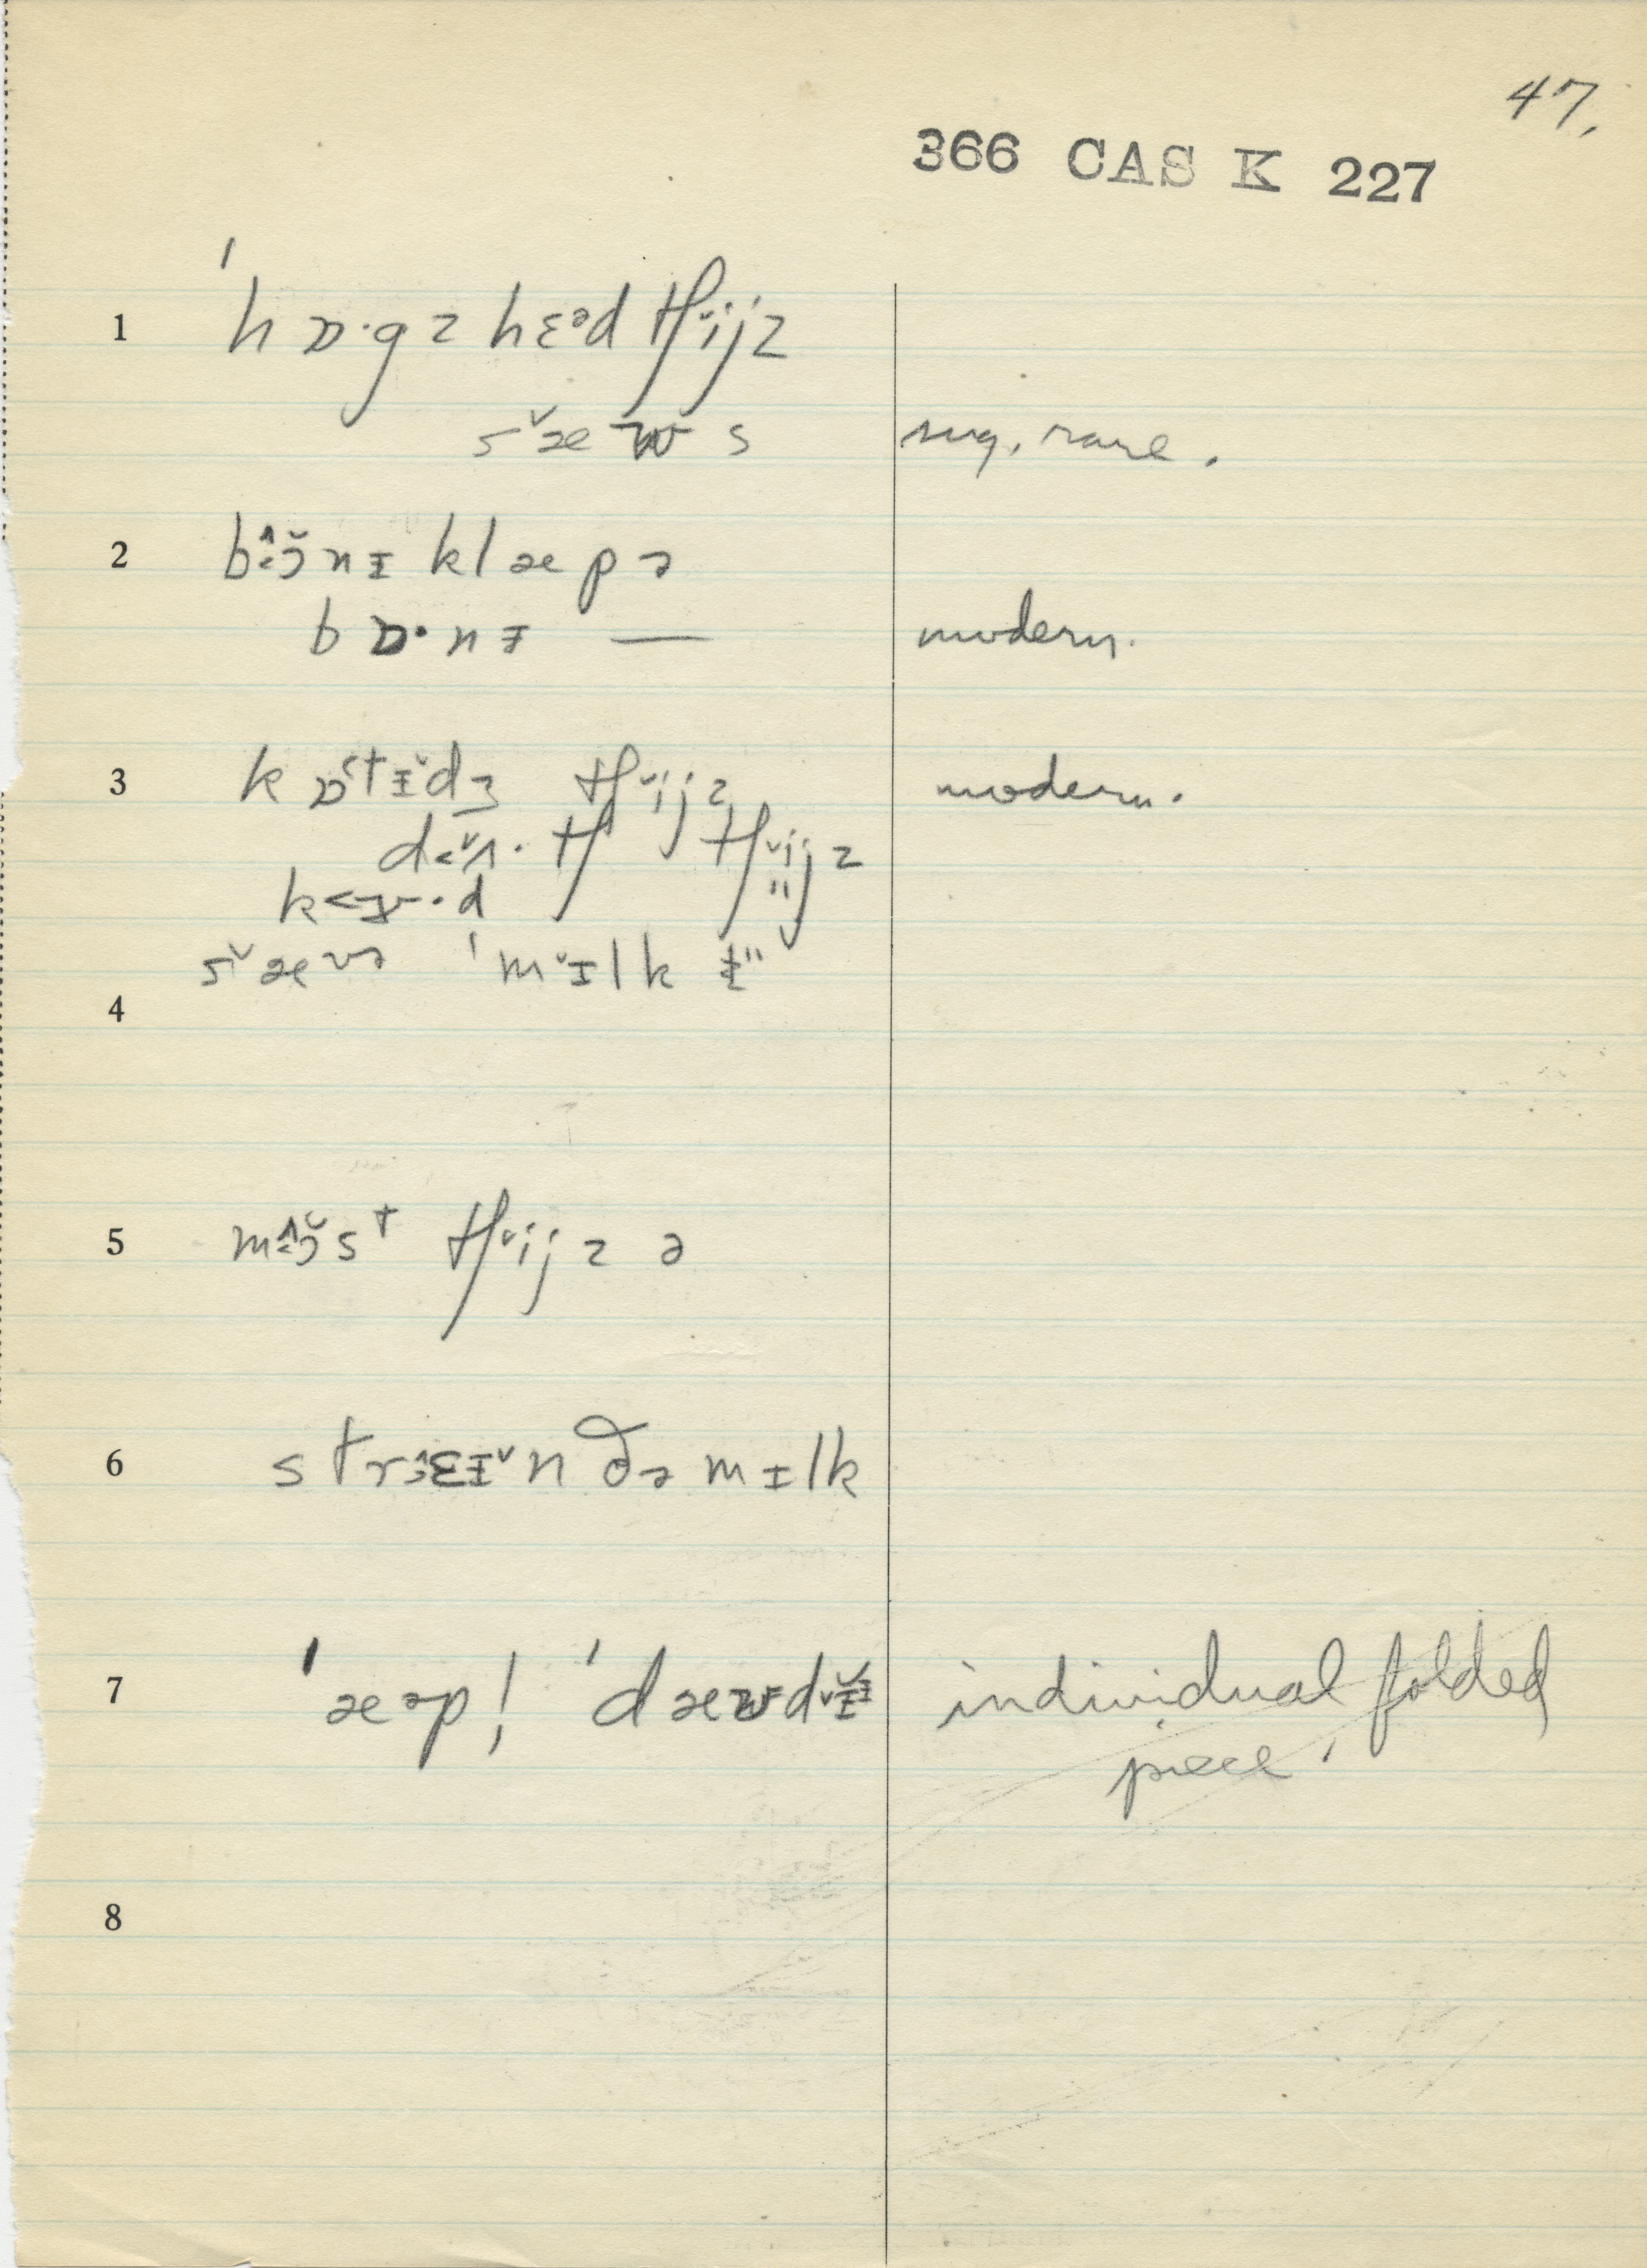 47.
366 CAS K 227
1 ˈhɒ·gz hɛᵊd tʃᵛijz
sᵛæʊs sug. rare.
2 b ɔ̆nɪ klæpə
bɒ·nɪ — modern.
3 kɒ˂tɪᵛdʒ tʃᵛijz modern.
d˂ᵛʌ·tʃ tʃᵛijz
k˂ɤ·d "
sᵛæʊə ˈmᵛɪlk
4
5 m ɔ̆st tʃᵛijz ə
6 strɛɪᵛn ðə mɪlk
7 ˈæəpl ˈdæʊdɪ individual folded
piece.
8